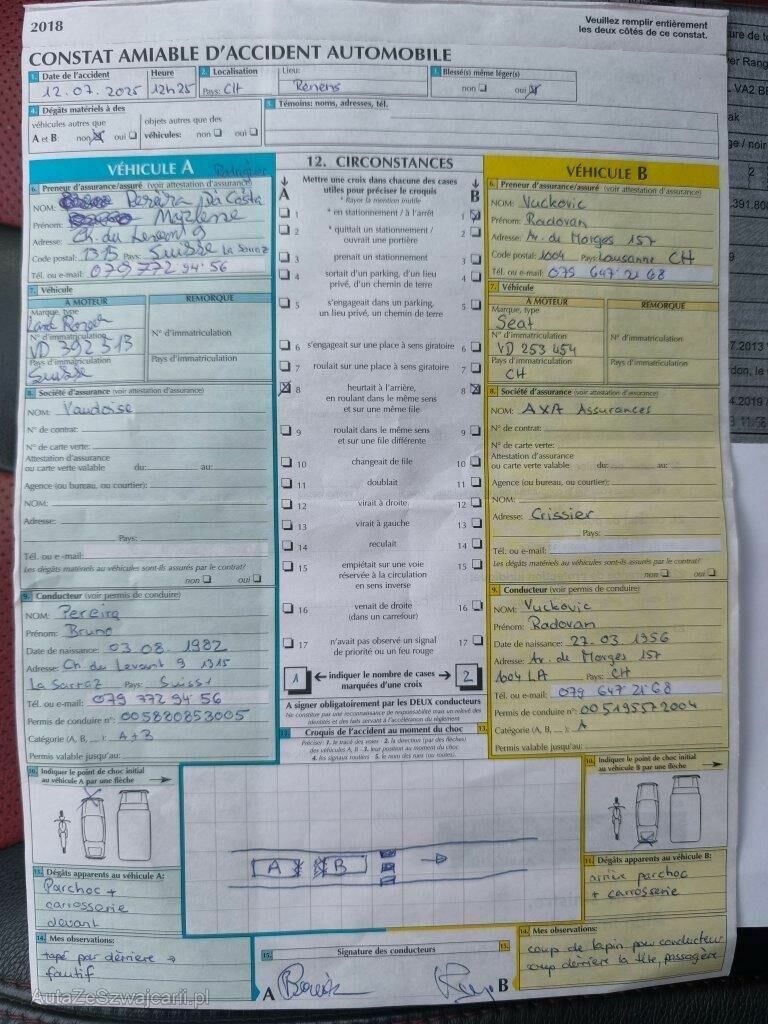 2018
Veuillez remplir entièrement
les deux côtés de ce constat.
CONSTAT AMIABLE D'ACCIDENT AUTOMOBILE
1. Date de l'accident Heure
12.07.2025 12h25
2. Localisation Lieu:
Pays: CH Renens
Blessé(s) même léger(s)
non oui
4. Dégâts matériels à des
véhicules autres que A et B: non oui
objets autres que des véhicules: non oui
Témoins: noms, adresses, tél.
VÉHICULE A
6. Preneur d'assurance/assuré (voir attestation d'assurance)
NOM: Pereira Da Costa
Prénom: Mylene
Adresse: Ch. du Levant 9
Code postal: 1315 Pays: Suisse La Sarraz
Tél. ou e-mail: 079 772 94 56
7. Véhicule
A MOTEUR REMORQUE
Marque, type
Land Rover
N° d'immatriculation N° d'immatriculation
VD 392 313
Pays d'immatriculation Pays d'immatriculation
Suisse
8. Société d'assurance (voir attestation d'assurance)
NOM: Vaudoise
N° de contrat:
N° de carte verte:
Attestation d'assurance
ou carte verte valable du: au:
Agence (ou bureau, ou courtier):
NOM:
Adresse:
Pays:
Tél. ou e-mail:
Les dégâts matériels au véhicules sont-ils assurés par le contrat?
non oui
9. Conducteur (voir permis de conduire)
NOM: Pereira
Prénom: Bruno
Date de naissance: 03.08.1982
Adresse: Ch du Levant 9 1315
La Sarraz Pays: Suisse
Tél. ou e-mail: 079 772 94 56
Permis de conduire n°: 005820853005
Catégorie (A, B, ...): A+B
Permis valable jusqu'au:
10. Indiquer le point de choc initial
au véhicule A par une flèche
11. Dégâts apparents au véhicule A:
Parchoc +
carrosserie
devant
14. Mes observations:
tapé par dèrriere →
fautif
12. CIRCONSTANCES
Mettre une croix dans chacune des cases
utiles pour préciser le croquis
A * Rayer la mention inutile B
1 * en stationnement / à l'arrêt 1
2 * quittait un stationnement /
ouvrait une portière 2
3 prenait un stationnement 3
4 sortait d'un parking, d'un lieu
privé, d'un chemin de terre 4
5 s'engageait dans un parking,
un lieu privé, un chemin de terre 5
6 s'engageait sur une place à sens giratoire 6
7 roulait sur une place à sens giratoire 7
8 heurtait à l'arrière,
en roulant dans le même sens
et sur une même file 8
9 roulait dans le même sens
et sur une file différente 9
10 changeait de file 10
11 doublait 11
12 virait à droite 12
13 virait à gauche 13
14 reculait 14
15 empiétait sur une voie
réservée à la circulation
en sens inverse 15
16 venait de droite
(dans un carrefour) 16
17 n'avait pas observé un signal
de priorité ou un feu rouge 17
1 indiquer le nombre de cases
marquées d'une croix 2
A signer obligatoirement par les DEUX conducteurs
Ne constitue pas une reconnaissance de responsabilité mais un relevé des
identités et des faits servant à l'accélération du règlement
Croquis de l'accident au moment du choc
Préciser: 1. le tracé des voies 2. la direction (par des flèches)
des véhicules A, B 3. leur position au moment du choc
4. les signaux routiers 5. le nom des rues (ou routes).
A B
15. Signature des conducteurs 15.
A B
VÉHICULE B
6. Preneur d'assurance/assuré (voir attestation d'assurance)
NOM: Vuckovic
Prénom: Radovan
Adresse: Av. de Morges 157
Code postal: 1004 Pays: Lausanne CH
Tél. ou e-mail: 079 647 21 68
7. Véhicule
A MOTEUR REMORQUE
Marque, type
Seat
N° d'immatriculation N° d'immatriculation
VD 253 454
Pays d'immatriculation Pays d'immatriculation
CH
8. Société d'assurance (voir attestation d'assurance)
NOM: AXA Assurances
N° de contrat:
N° de carte verte:
Attestation d'assurance
ou carte verte valable du: au:
Agence (ou bureau, ou courtier):
NOM:
Adresse: Crissier
Pays:
Tél. ou e-mail:
Les dégâts matériels au véhicules sont-ils assurés par le contrat?
non oui
9. Conducteur (voir permis de conduire)
NOM: Vuckovic
Prénom: Radovan
Date de naissance: 27.03.1956
Adresse: Av. de Morges 157
1004 LA Pays: CH
Tél. ou e-mail: 079 647 21 68
Permis de conduire n°: 005195572004
Catégorie (A, B, ...): A
Permis valable jusqu'au:
10. Indiquer le point de choc initial
au véhicule B par une flèche
11. Dégâts apparents au véhicule B:
arrière parchoc
+ carrosserie
14. Mes observations:
coup de lapin pour conducteur
coup derrière la tête, passagère
AutaZeSzwajcarii.pl